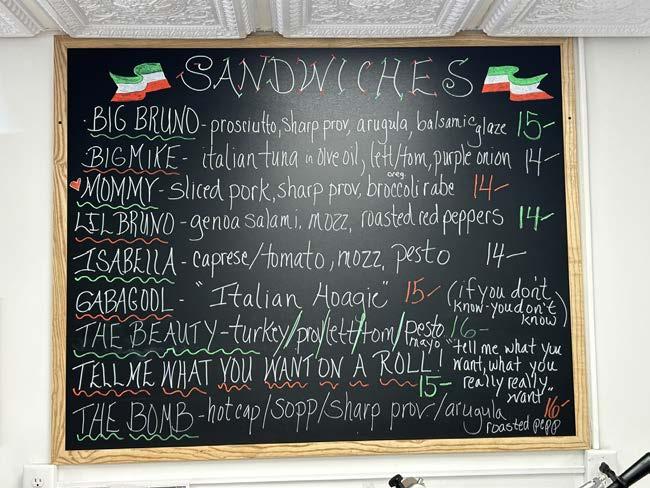 SANDWICHES
BIG BRUNO - prosciutto, sharp prov, arugula, balsamic glaze 15-
BIG MIKE - italian tuna in olive oil, lett/tom, purple onion 14-
MOMMY - sliced pork, sharp prov, oreg. broccoli rabe 14-
LIL BRUNO - genoa salami, mozz, roasted red peppers 14-
ISABELLA - caprese/tomato, mozz, pesto 14-
GABAGOOL - "Italian Hoagie" 15- (if you don't know - you don't know)
THE BEAUTY - turkey/prov/lett/tom/pesto mayo 16-
TELL ME WHAT YOU WANT ON A ROLL! 15- "tell me what you want, what you really really want"
THE BOMB - hotcap/sopp/sharp prov/arugula roasted pepp 16-